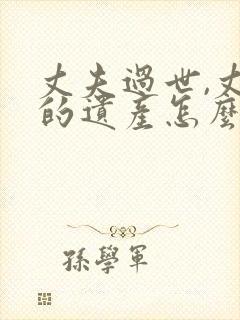 丈夫過世,丈
的遺產怎麼
孫學軍